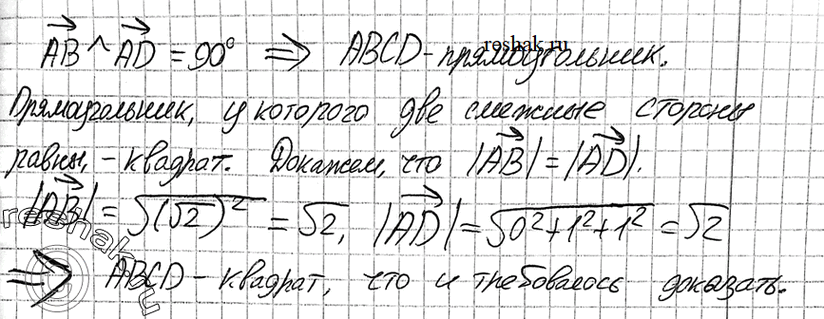 AB ^ AD = 90° ⇒ ABCD - прямоугольник.
reshak.ru
Прямоугольник, у которого две смежные стороны
равны, - квадрат. Докажем, что |AB| = |AD|.
|AB| = √(√2)² = √2, |AD| = √0²+1²+1² = √2
reshak.ru
⇒ ABCD - квадрат, что и требовалось доказать.